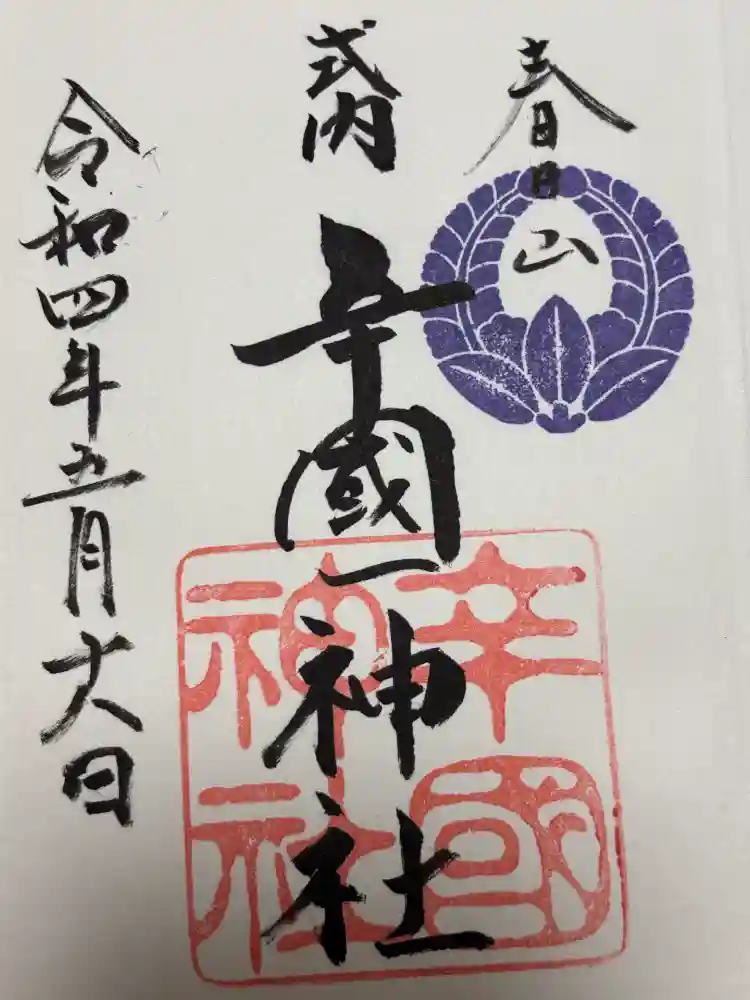 春日山
式内
辛國神社
辛國
神社
令和四年五月日